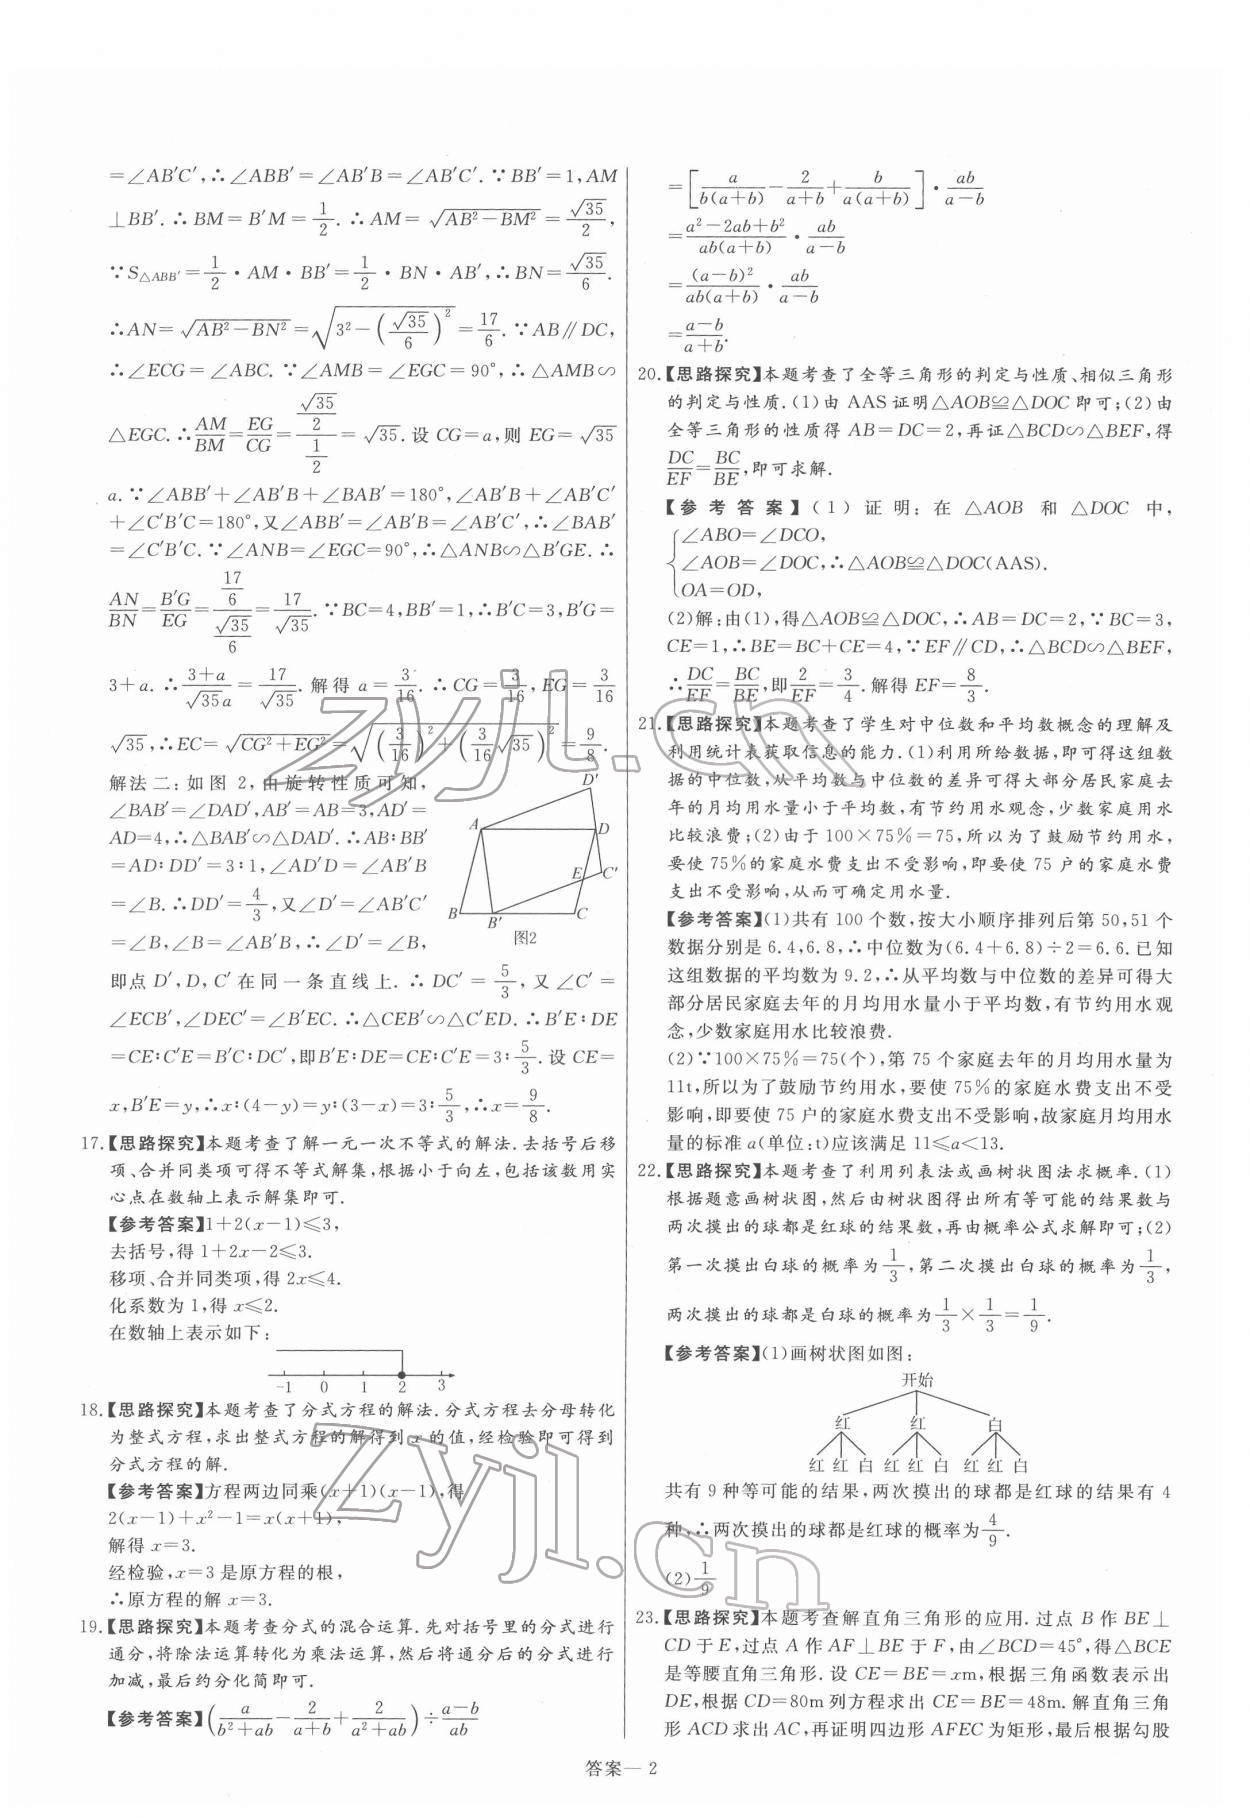 =∠AB′C′,∴∠ABB′=∠AB′B=∠AB′C′.∵BB′=1,AM
⊥BB′.∴BM=B′M=1/2.∴AM=√(AB²-BM²)=√35/2,
∵S△ABB′=1/2·AM·BB′=1/2·BN·AB′,∴BN=√35/6.
∴AN=√(AB²-BN²)=√(3²-(√35/6)²)=17/6.∵AB∥DC,
∴∠ECG=∠ABC.∵∠AMB=∠EGC=90°,∴△AMB∽
△EGC.∴AM/BM=EG/CG=(√35/2)/(1/2)=√35.设CG=a,则EG=√35
a.∵∠ABB′+∠AB′B+∠BAB′=180°,∠AB′B+∠AB′C′
+∠C′B′C=180°,又∠ABB′=∠AB′B=∠AB′C′,∴∠BAB′
=∠C′B′C.∵∠ANB=∠EGC=90°,∴△ANB∽△B′GE.∴
AN/BN=B′G/EG=(17/6)/(√35/6)=17/√35.∵BC=4,BB′=1,∴B′C=3,B′G=
3+a.∴(3+a)/(√35a)=17/√35.解得a=3/16.∴CG=3/16,EG=3/16
√35,∴EC=√(CG²+EG²)=√((3/16)²+(3/16√35)²)=9/8.
解法二:如图2,由旋转性质可知,
∠BAB′=∠DAD′,AB′=AB=3,AD′=
AD=4,∴△BAB′∽△DAD′.∴AB∶BB′
=AD∶DD′=3∶1,∠AD′D=∠AB′B
=∠B.∴DD′=4/3,又∠D′=∠AB′C′
=∠B,∠B=∠AB′B,∴∠D′=∠B,
A
D′
D
E
C′
B
B′
C
图2
即点D′,D,C′在同一条直线上.∴DC′=5/3,又∠C′=
∠ECB′,∠DEC′=∠B′EC.∴△CEB′∽△C′ED.∴B′E∶DE
=CE∶C′E=B′C∶DC′,即B′E∶DE=CE∶C′E=3∶5/3.设CE=
x,B′E=y,∴x∶(4-y)=y∶(3-x)=3∶5/3,∴x=9/8.
17.【思路探究】本题考查了解一元一次不等式的解法.去括号后移
项、合并同类项可得不等式解集,根据小于向左,包括该数用实
心点在数轴上表示解集即可.
【参考答案】1+2(x-1)≤3,
去括号,得1+2x-2≤3.
移项、合并同类项,得2x≤4.
化系数为1,得x≤2.
在数轴上表示如下:
-1 0 1 2 3
18.【思路探究】本题考查了分式方程的解法.分式方程去分母转化
为整式方程,求出整式方程的解得到x的值,经检验即可得到
分式方程的解.
【参考答案】方程两边同乘(x+1)(x-1),得
2(x-1)+x²-1=x(x+1),
解得x=3.
经检验,x=3是原方程的根,
∴原方程的解x=3.
19.【思路探究】本题考查分式的混合运算.先对括号里的分式进行
通分,将除法运算转化为乘法运算,然后将通分后的分式进行
加减,最后约分化简即可.
【参考答案】(a/(b²+ab)-2/(a+b)+2/(a²+ab))÷(a-b)/ab
=[a/(b(a+b))-2/(a+b)+b/(a(a+b))]·ab/(a-b)
=(a²-2ab+b²)/(ab(a+b))·ab/(a-b)
=(a-b)²/(ab(a+b))·ab/(a-b)
=(a-b)/(a+b).
20.【思路探究】本题考查了全等三角形的判定与性质、相似三角形
的判定与性质.(1)由AAS证明△AOB≌△DOC即可;(2)由
全等三角形的性质得AB=DC=2,再证△BCD∽△BEF,得
DC/EF=BC/BE,即可求解.
【参考答案】(1)证明:在△AOB和△DOC中,
{∠ABO=∠DCO,
∠AOB=∠DOC,∴△AOB≌△DOC(AAS).
OA=OD,
(2)解:由(1),得△AOB≌△DOC,∴AB=DC=2,∵BC=3,
CE=1,∴BE=BC+CE=4,∵EF∥CD,∴△BCD∽△BEF,
∴DC/EF=BC/BE,即2/EF=3/4.解得EF=8/3.
21.【思路探究】本题考查了学生对中位数和平均数概念的理解及
利用统计表获取信息的能力.(1)利用所给数据,即可得这组数
据的中位数,从平均数与中位数的差异可得大部分居民家庭去
年的月均用水量小于平均数,有节约用水观念,少数家庭用水
比较浪费;(2)由于100×75%=75,所以为了鼓励节约用水,
要使75%的家庭水费支出不受影响,即要使75户的家庭水费
支出不受影响,从而可确定用水量.
【参考答案】(1)共有100个数,按大小顺序排列后第50,51个
数据分别是6.4,6.8,∴中位数为(6.4+6.8)÷2=6.6.已知
这组数据的平均数为9.2,∴从平均数与中位数的差异可得大
部分居民家庭去年的月均用水量小于平均数,有节约用水观
念,少数家庭用水比较浪费.
(2)∵100×75%=75(个),第75个家庭去年的月均用水量为
11t,所以为了鼓励节约用水,要使75%的家庭水费支出不受
影响,即要使75户的家庭水费支出不受影响,故家庭月均用水
量的标准a(单位:t)应该满足11≤a<13.
22.【思路探究】本题考查了利用列表法或画树状图法求概率.(1)
根据题意画树状图,然后由树状图得出所有等可能的结果数与
两次摸出的球都是红球的结果数,再由概率公式求解即可;(2)
第一次摸出白球的概率为1/3,第二次摸出白球的概率为1/3,
两次摸出的球都是白球的概率为1/3×1/3=1/9.
【参考答案】(1)画树状图如图:
开始
红 红 白
红 红 白 红 红 白 红 红 白
共有9种等可能的结果,两次摸出的球都是红球的结果有4
种,∴两次摸出的球都是红球的概率为4/9.
(2)1/9
23.【思路探究】本题考查解直角三角形的应用.过点B作BE⊥
CD于E,过点A作AF⊥BE于F,由∠BCD=45°,得△BCE
是等腰直角三角形.设CE=BE=xm,根据三角函数表示出
DE,根据CD=80m列方程求出CE=BE=48m.解直角三角
形ACD求出AC,再证明四边形AFEC为矩形,最后根据勾股
答案—2
zyjl.cn
zyjl.cn